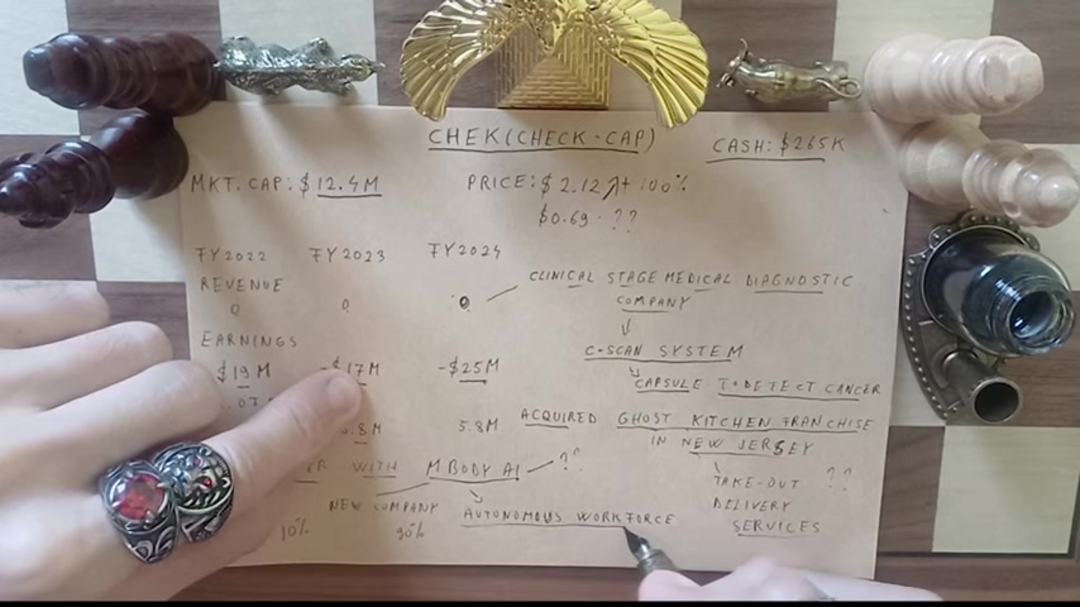 CHEK(CHECK-CAP)
CASH: $265K
MKT. CAP: $12.4M
PRICE: $2.12 ↗+100%
$0.69 ??
FY2022 FY2023 FY2024
REVENUE
0 0 0
CLINICAL STAGE MEDICAL DIAGNOSTIC
COMPANY
EARNINGS
C-SCAN SYSTEM
$19M -$17M -$25M
CAPSULE TO DETECT CANCER
5.8M
ACQUIRED GHOST KITCHEN FRANCHISE
IN NEW JERSEY
WITH MBODY AI ??
TAKE-OUT ??
DELIVERY
SERVICES
NEW COMPANY
AUTONOMOUS WORKFORCE
10% 90%